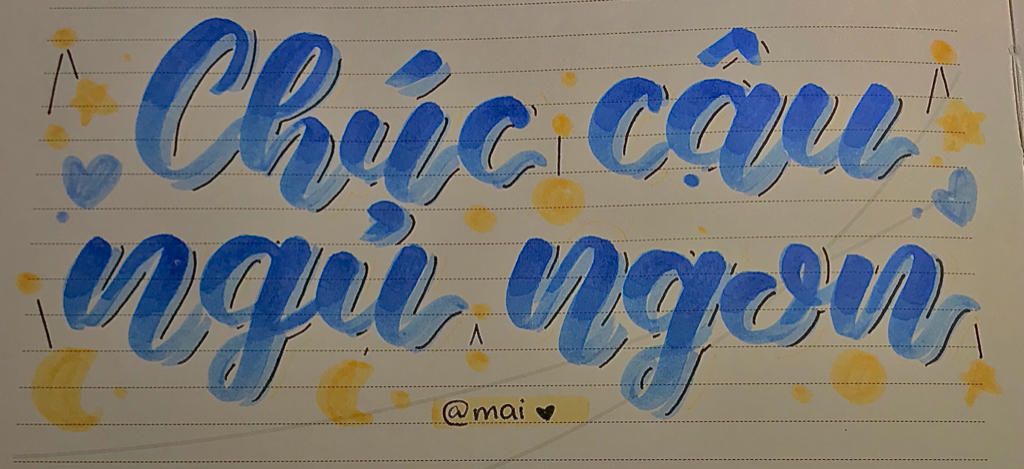 Chúc cậu
ngủ ngon
@mai ♥